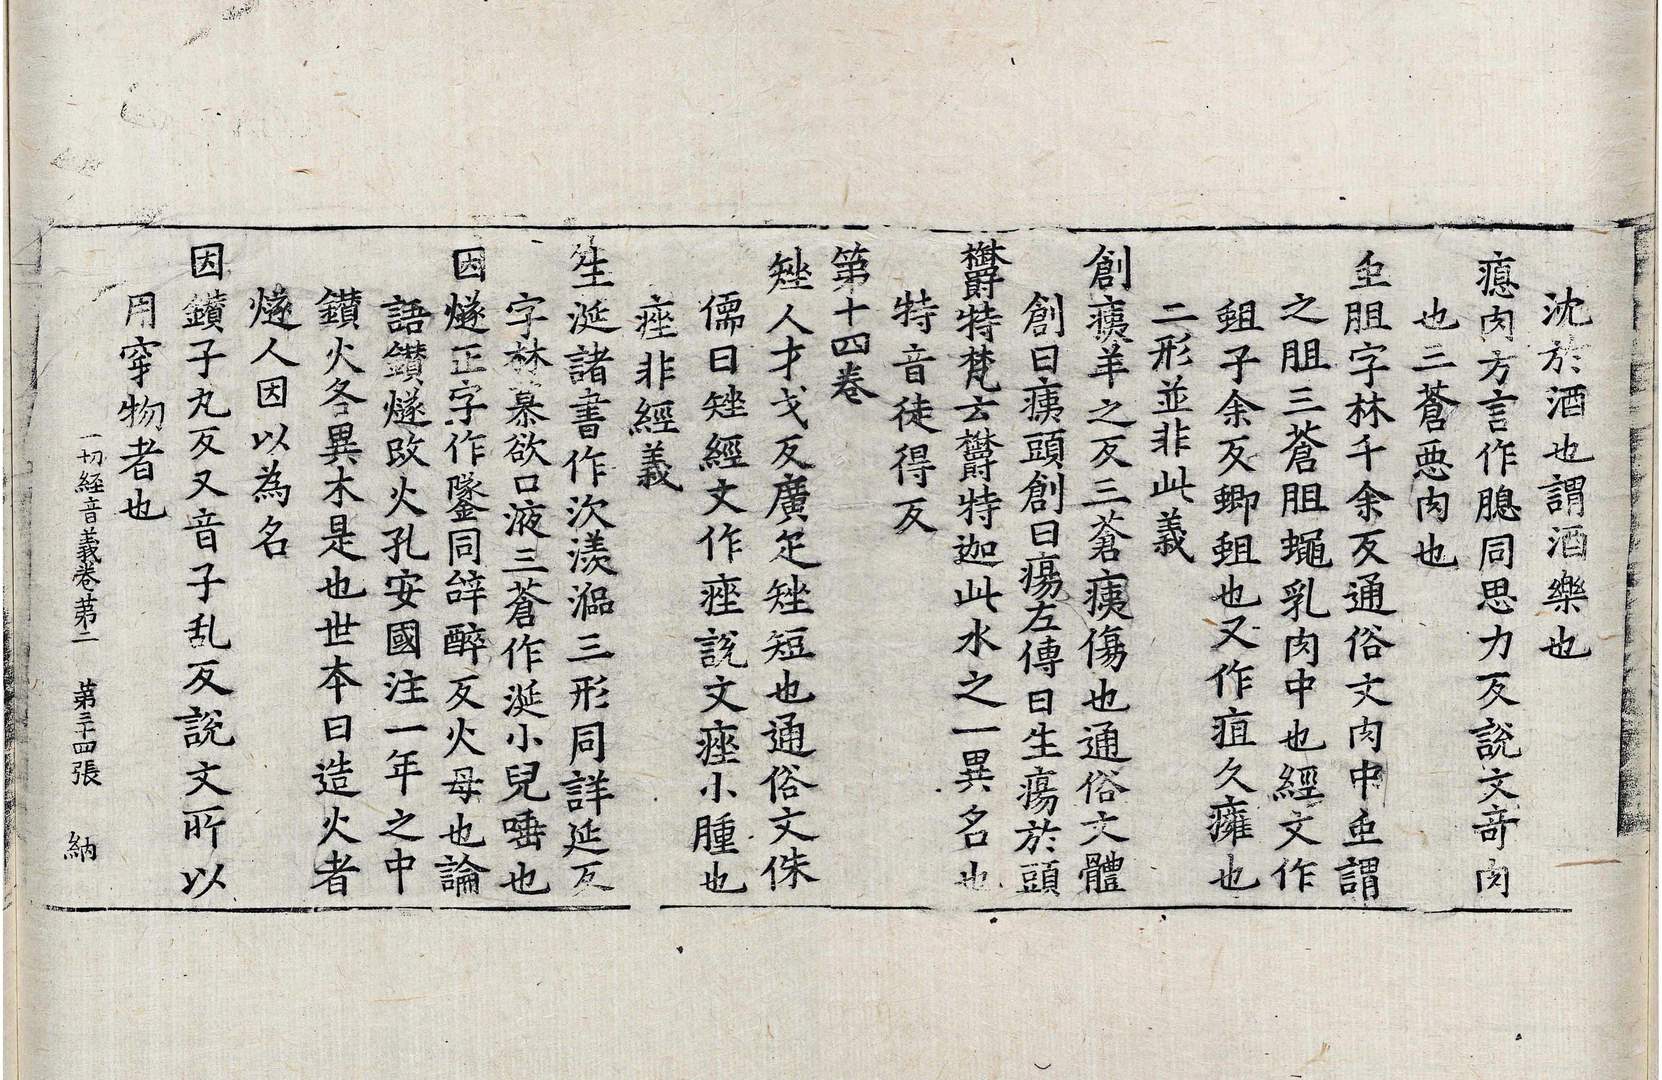 沈於酒也謂酒樂也
瘜肉方言作膓同思力反說文竒肉
也三蒼惡肉也
䖝胆字林千余反通俗文肉中䖝謂
之胆三蒼胆蠅乳肉中也經文作
蛆子余反蝍蛆也又作疽久癰也
二形並非此義
創痍羊之反三蒼痍傷也通俗文體
創曰痍頭創曰瘍左傳曰生瘍於頭
欝特梵云欝特迦此水之一異名也
特音徒得反
第十四卷
矬人才戈反廣疋矬短也通俗文侏
儒曰矬經文作痤說文痤小腫也
痤非經義
生涎諸書作次㳄漾㳑三形同詳延反
字林慕欲口液三蒼作涎小兒唾也
因燧正字作䥙同辝醉反火母也論
語鑚燧改火孔安國注一年之中
鑚火各異木是也世本曰造火者
燧人因以為名
因鑚子丸反又音子乱反說文所以
用穿物者也
一切經音義卷第二 第三十四張 納